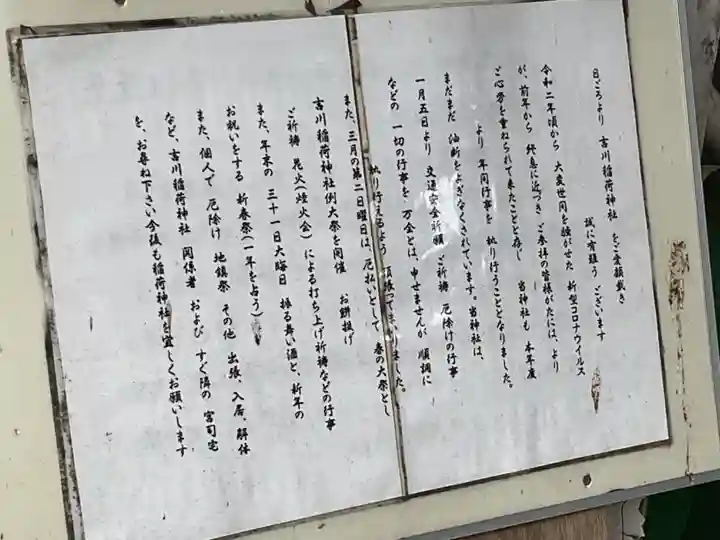 日ごろより 古川稲荷神社 をご愛顧戴き
誠に有難う ございます
令和二年頃から 大変世間を騒がせた 新型コロナウイルス
が、前年から 終息に近づき ご参拝の皆様がたには、より
ご心労を重ねられて来たことと存し 当神社も 本年度
より 年間行事を 執り行うこととなりました。
まだまだ 油断をよぎなくされています。当神社は、
一月五日より 交通安全祈願 ご祈祷 厄除けの行事
などの 一切の行事を 万全とは、申せませんが 順調に
執り行えるよう 頑張ってまいりました。
また、三月の第二日曜日は、厄払いとして 春の大祭とし
古川稲荷神社例大祭を開催 お餅投げ
ご祈祷 花火(煙火会)による打ち上げ祈祷などの行事
また、年末の 三十一日大晦日 振る舞い酒と、新年の
お祝いをする 新春祭(一年を占う)
また、個人で 厄除け 地鎮祭 その他 出張、入居、解体
など、古川稲荷神社 関係者 および すぐ隣の 宮司宅
を、お尋ね下さい今後も稲荷神社を宜しくお願いします